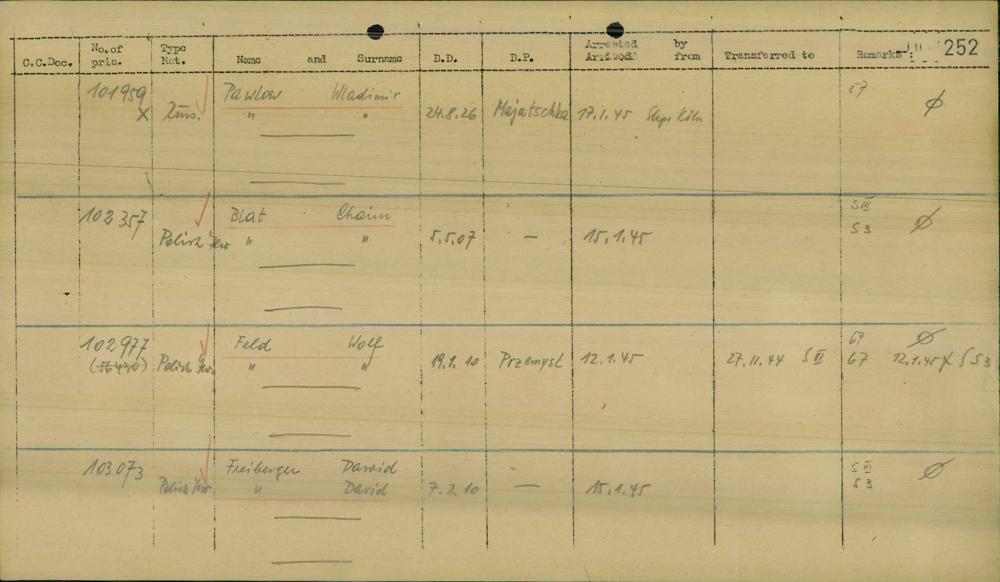 C.C.Doc. No. of pris. Type Nat. Name and Surname B.D. B.P. Arrested Arrived by from Transferred to Remarks: 252
101959 Pawlow Wladimir 57 ø
X Russ. " " 24.8.26 Majatschka 17.1.45 Stapo Köln
102357 Blat Chaim S III ø
Polish Jew " " 5.5.07 — 15.1.45 S3
102977 Feld Wolf 67 ø
Polish Jew " " 19.1.10 Przemysl 12.1.45 27.11.44 S III 67 12.1.45 X S S3
103073 Freiberger Dawid S III ø
Polish Jew " David 7.2.10 — 15.1.45 S3